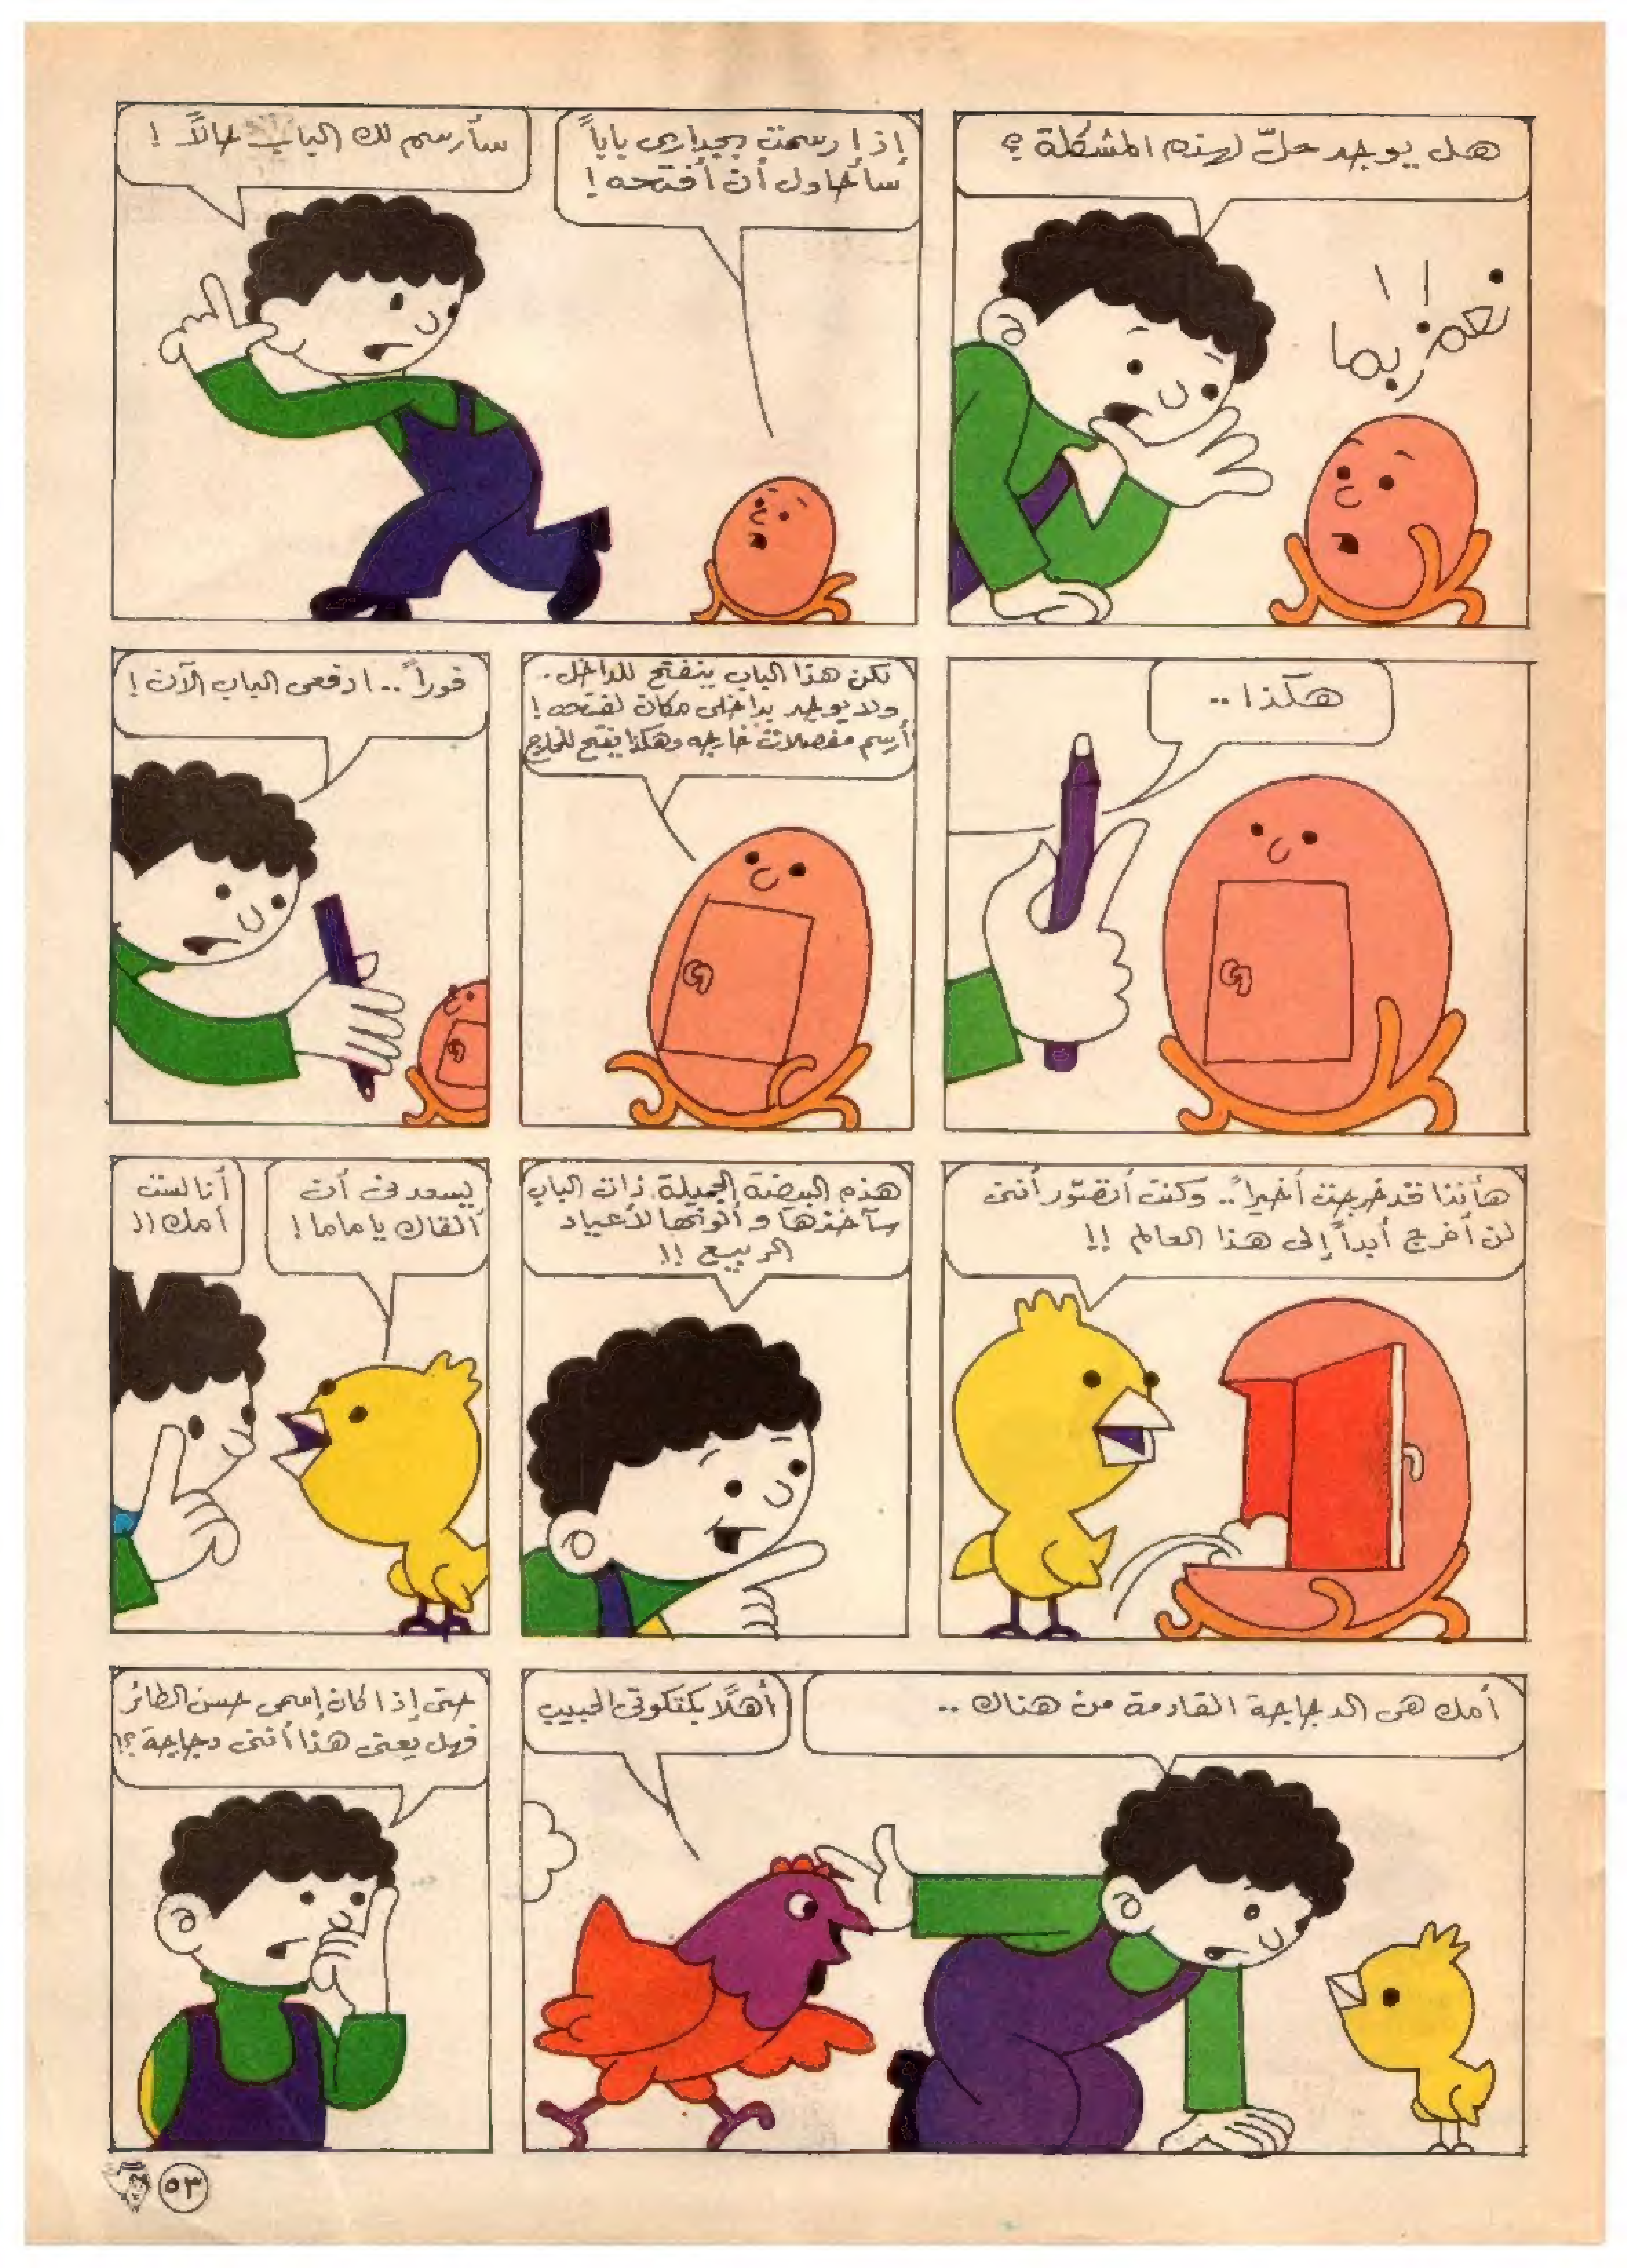 هل يوجد حلّ لهذه المشكلة ؟
نعم ربما !!
إذا رسمت بجداري باباً
سأحاول أن أفتحه !
سأرسم لك الباب حالاً !
هكذا ..
لكن هذا الباب ينفتح للداخل .
ولا يوجد بداخلي مكان لفتحه !
أرسم مفصلات خارجه وهكذا يفتح للخارج
فوراً .. ادفعى الباب الآن !
هأنذا قد خرجت أخيراً .. وكنت أتصوّر أننى
لن أخرج أبداً إلى هذا العالم !!
هذه البيضة الجميلة ذات الباب
سآخذها وألونها لأعياد
الربيع !!
يسعدنى أن
ألقاك يا ماما !
أنا لست
أمك !!
أمك هى الدجاجة القادمة من هناك ..
أهلًا بكتكوتى الحبيب
حتى إذا كان إسمى حسن الطائر
فهل يعنى هذا أننى دجاجة ؟!
٥٣